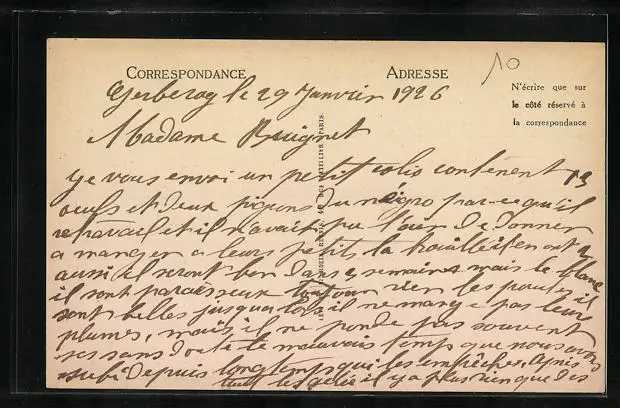 10
CORRESPONDANCE
ADRESSE
N'écrire que sur
le côté réservé à
la correspondance
Gerberoy le 29 Janvier 1926
Madame
je vous envoi un petit colis contenent 13
oeufs et deux pigons du négro par-ce qu'il
retravail et il n'avait pu l'air de donner
a manger a leurs petits la trouille il en ont 2
aussi il seront bon dans 2 semaines mais le blanc
il sont paraiseux toujour rien les poules il
sont belles jusqua lors il ne mange pas leur
plumes, mais il ne ponde pas souvent
ses sans doute te mauvais temps que nous avons
subi depuis longtemps qui les empêcher, depuis
tout les gelée il y a plus rien que des